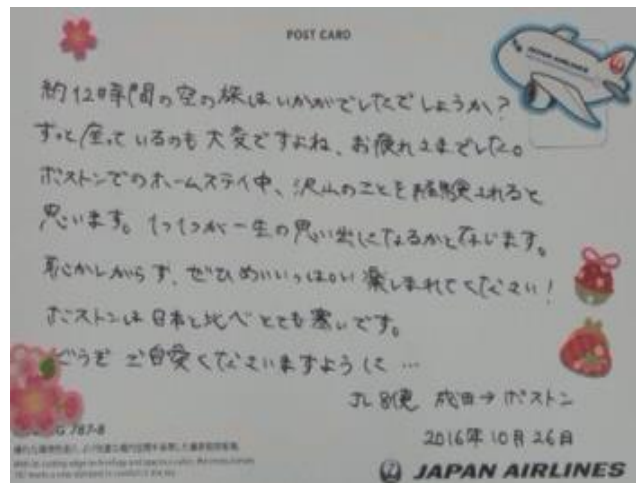 POST CARD
JAPAN AIRLINES
約12時間の空の旅はいかがでしたでしょうか?
ずっと座っているのも大変ですよね、お疲れさまでした。
ボストンでのホームステイ中、沢山のことを経験されると
思います。1つ1つが一生の思い出になるかと存じます。
恥かしがらず、ぜひめいいっぱい楽しまれてください!
ボストンは日本と比べとても寒いです。
どうぞご自愛くださいますように…
JL8便 成田→ボストン
2016年10月26日
787-8
JAPAN AIRLINES